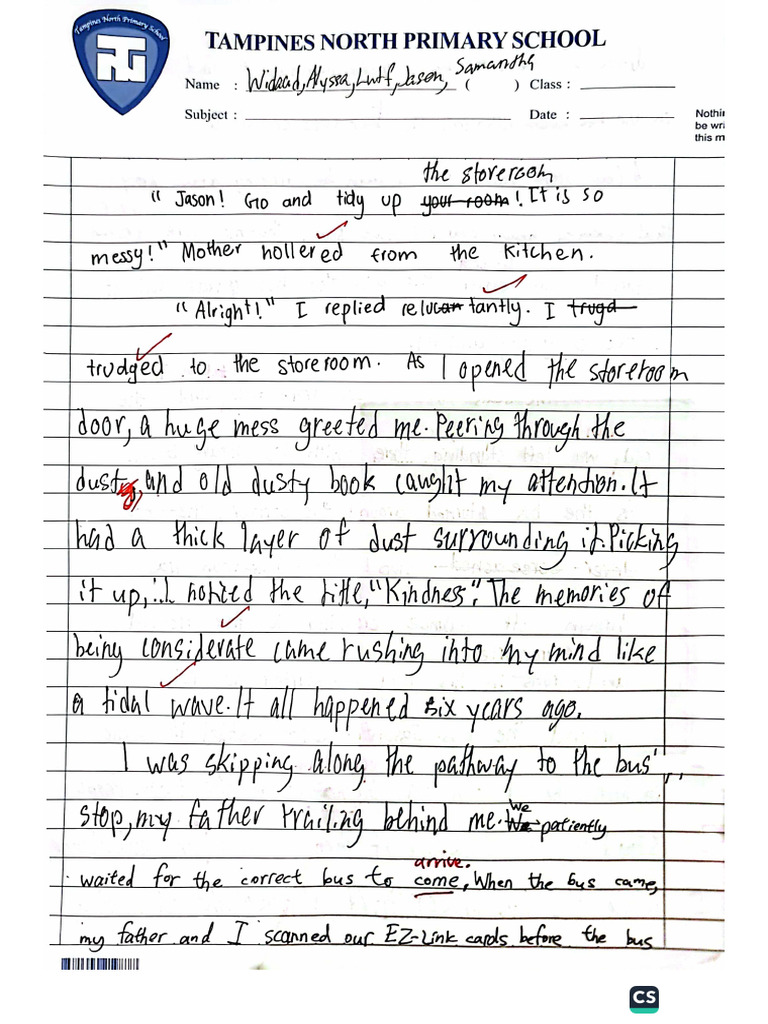 Tampines North Primary School
TN
TAMPINES NORTH PRIMARY SCHOOL
Name : Widaad, Alyssa, Lutf, Jason, Samantha ( ) Class :
Subject : Date :
Nothin
be wri
this m
the storeroom
"Jason! Go and tidy up your room! It is so
messy!" Mother hollered from the kitchen.
"Alright!" I replied reluctantly. I trugd
trudged to the storeroom. As I opened the storeroom
door, a huge mess greeted me. Peering through the
dust, and old dusty book caught my attention. It
had a thick layer of dust surrounding it. Picking
it up, I noticed the title, "Kindness". The memories of
being considerate came rushing into my mind like
a tidal wave. It all happened six years ago.
I was skipping along the pathway to the bus
stop, my father trailing behind me. We We patiently
arrive.
waited for the correct bus to come, When the bus came,
my father and I scanned our EZ-Link cards before the bus
CS